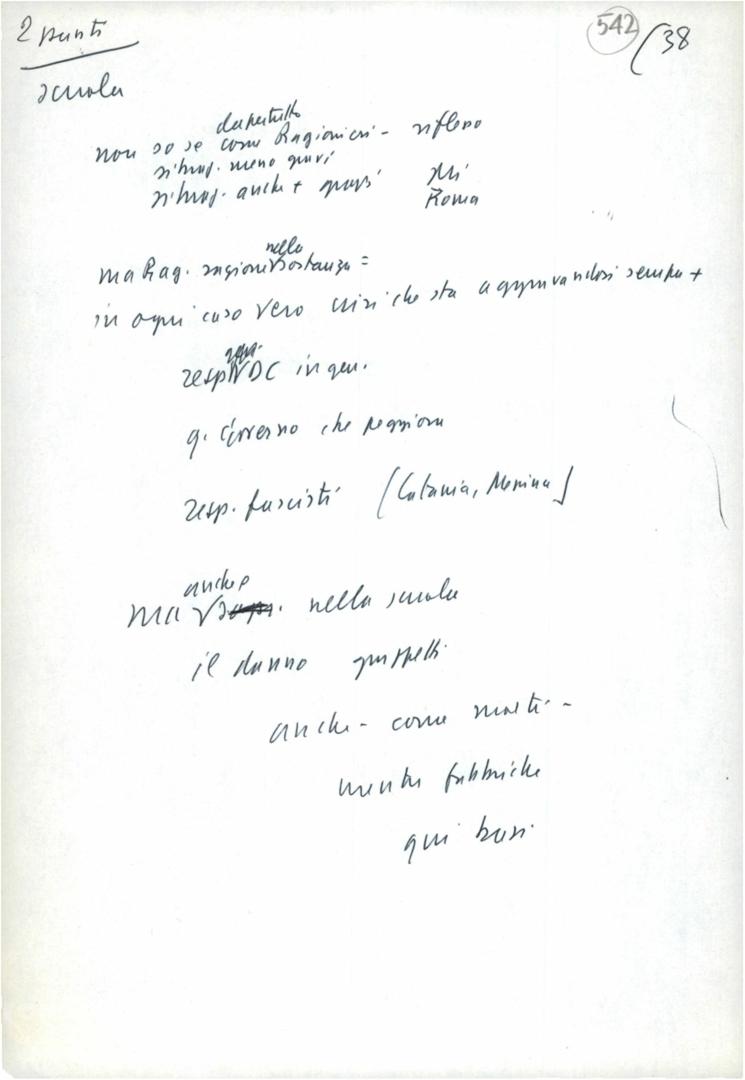 2 punti
542 / 38
scuola
dapertutto
non so se come Ragionieri - riflesso
situaz. meno gravi
situaz. anche + gravi Mi
Roma
nella
ma Rag. ragione √ sostanza =
in ogni caso vero crisi che sta aggravandosi sempre +
resp √ DC in gen.
q. Governo che peggiora
resp. fascisti (Catania, Messina)
anche
ma √ nella scuola
il danno gruppetti
anche - come morti -
mentre fabbriche
qui basi